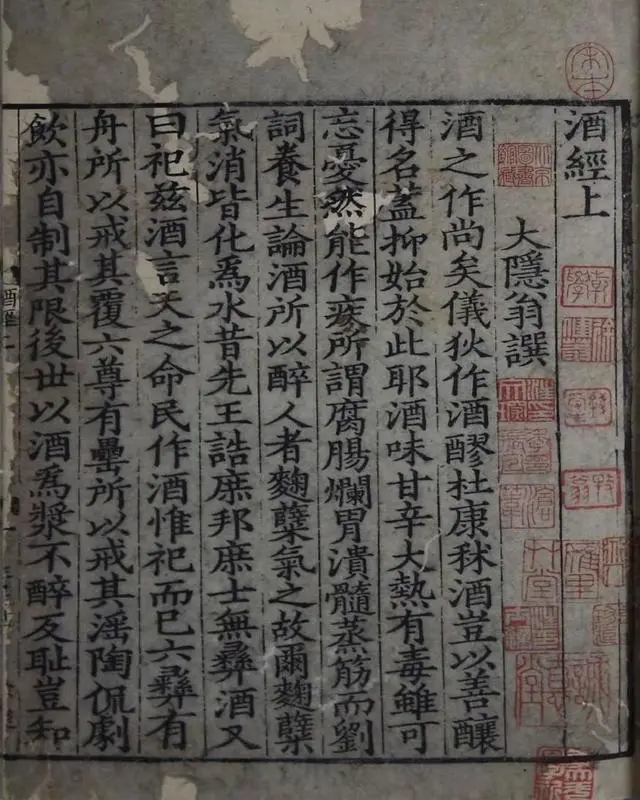 酒經上
大隱翁譔
酒之作尚矣儀狄作酒醪杜康秫酒豈以善釀
得名蓋抑始於此耶酒味甘辛大熱有毒雖可
忘憂然能作疾所謂腐腸爛胃潰髓蒸筋而劉
詞養生論酒所以醉人者麴糵氣之故爾麴糵
氣消皆化爲水昔先王誥庶邦庶士無彝酒又
曰祀兹酒言天之命民作酒惟祀而已六彝有
舟所以戒其覆六尊有罍所以戒其淫陶侃劇
飲亦自制其限後世以酒爲漿不醉反恥豈知